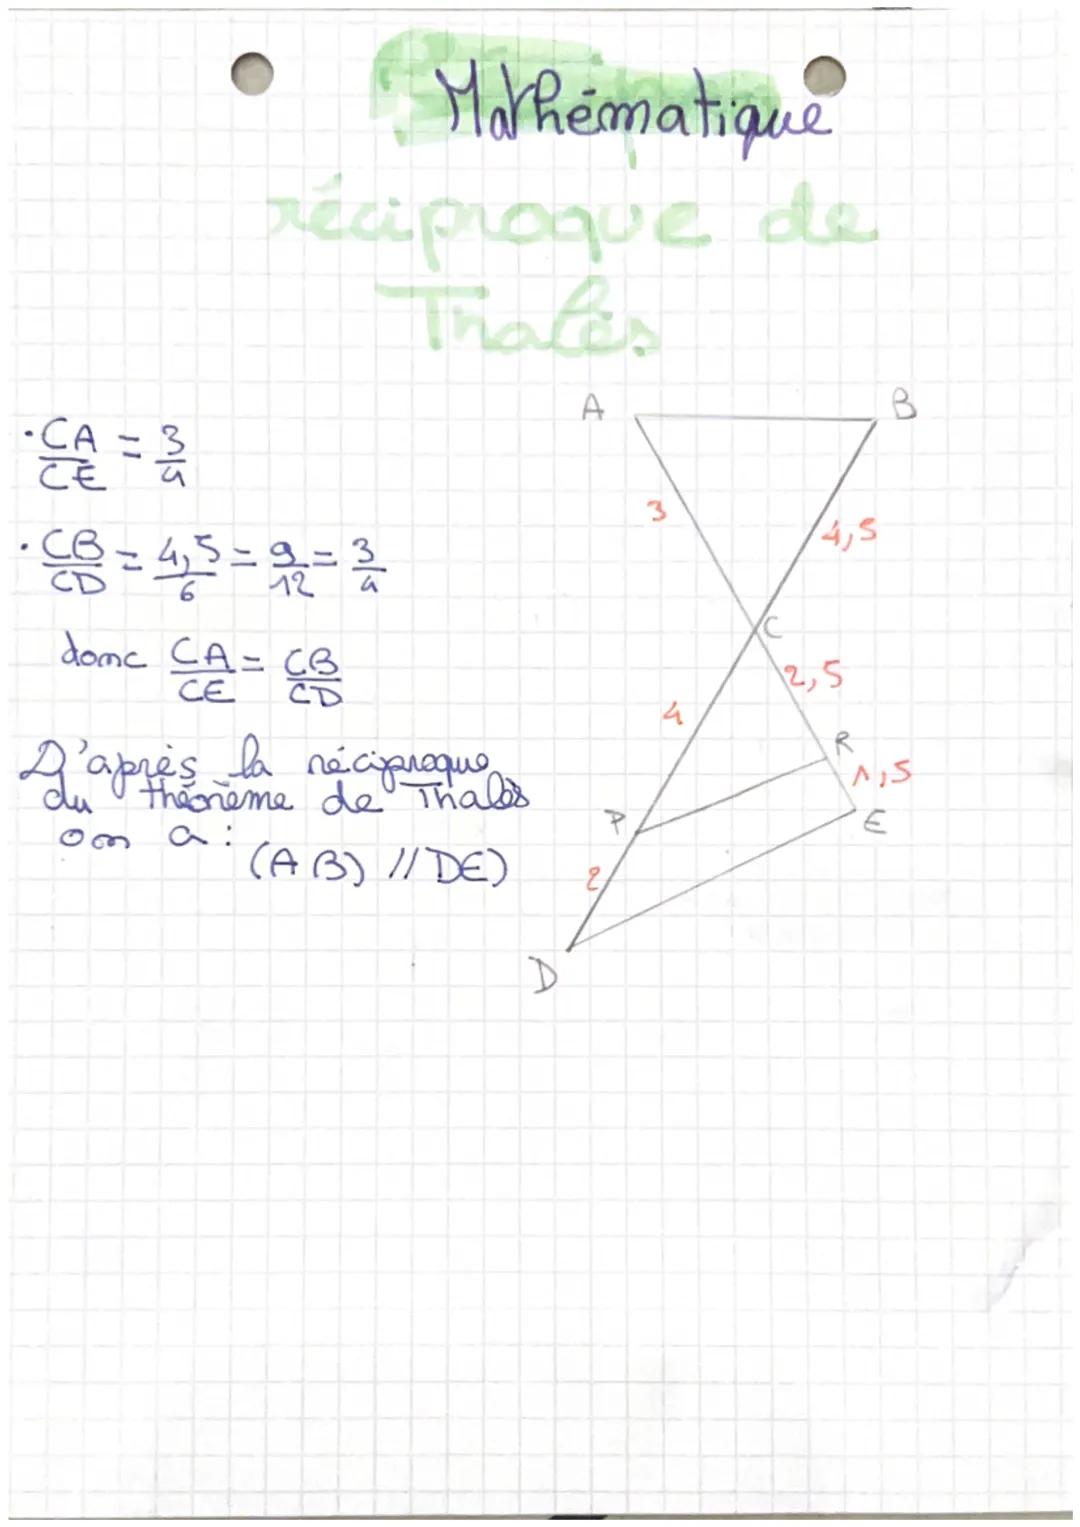 Mathématique
réciproque de
Thalès
A
B
· CA/CE = 3/4
3
4,5
· CB/CD = 4,5/6 = 9/12 = 3/4
C
donc CA/CE = CB/CD
2,5
4
R
D'après la réciproque
1,5
du théorème de Thalès
P
E
on a :
(AB) // DE)
2
D